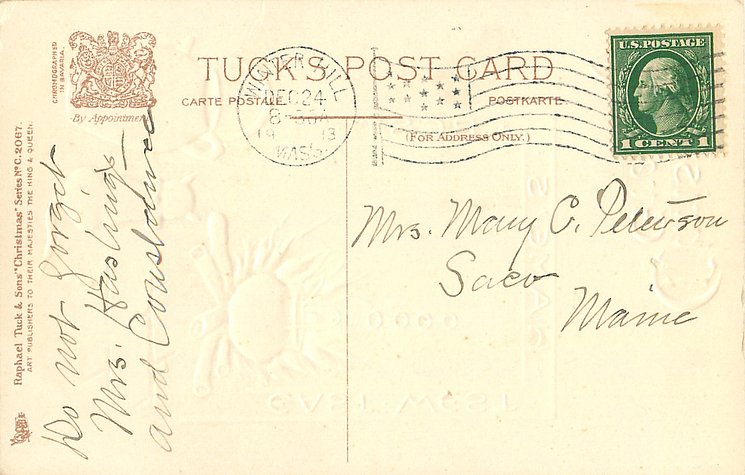 CHROMOGRAPHED
IN BAVARIA.
By Appointment
TUCK'S POST CARD
CARTE POSTALE.
POSTKARTE.
(FOR ADDRESS ONLY.)
WINTER HILL
DEC 24
8
19 13
MASS.
U.S. POSTAGE
1 CENT 1
Raphael Tuck & Sons' "Christmas" Series No C. 2067.
ART PUBLISHERS TO THEIR MAJESTIES THE KING & QUEEN.
Do not forget
Mrs. Hastings
and
Mrs. Mary C. Peterson
Saco
Maine
EAST WEST